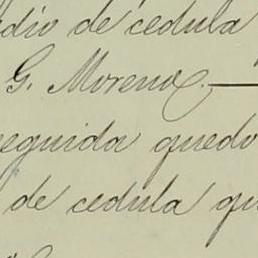 dio de cedula
G. Moreno.—
eguida quedo
de cedula qu